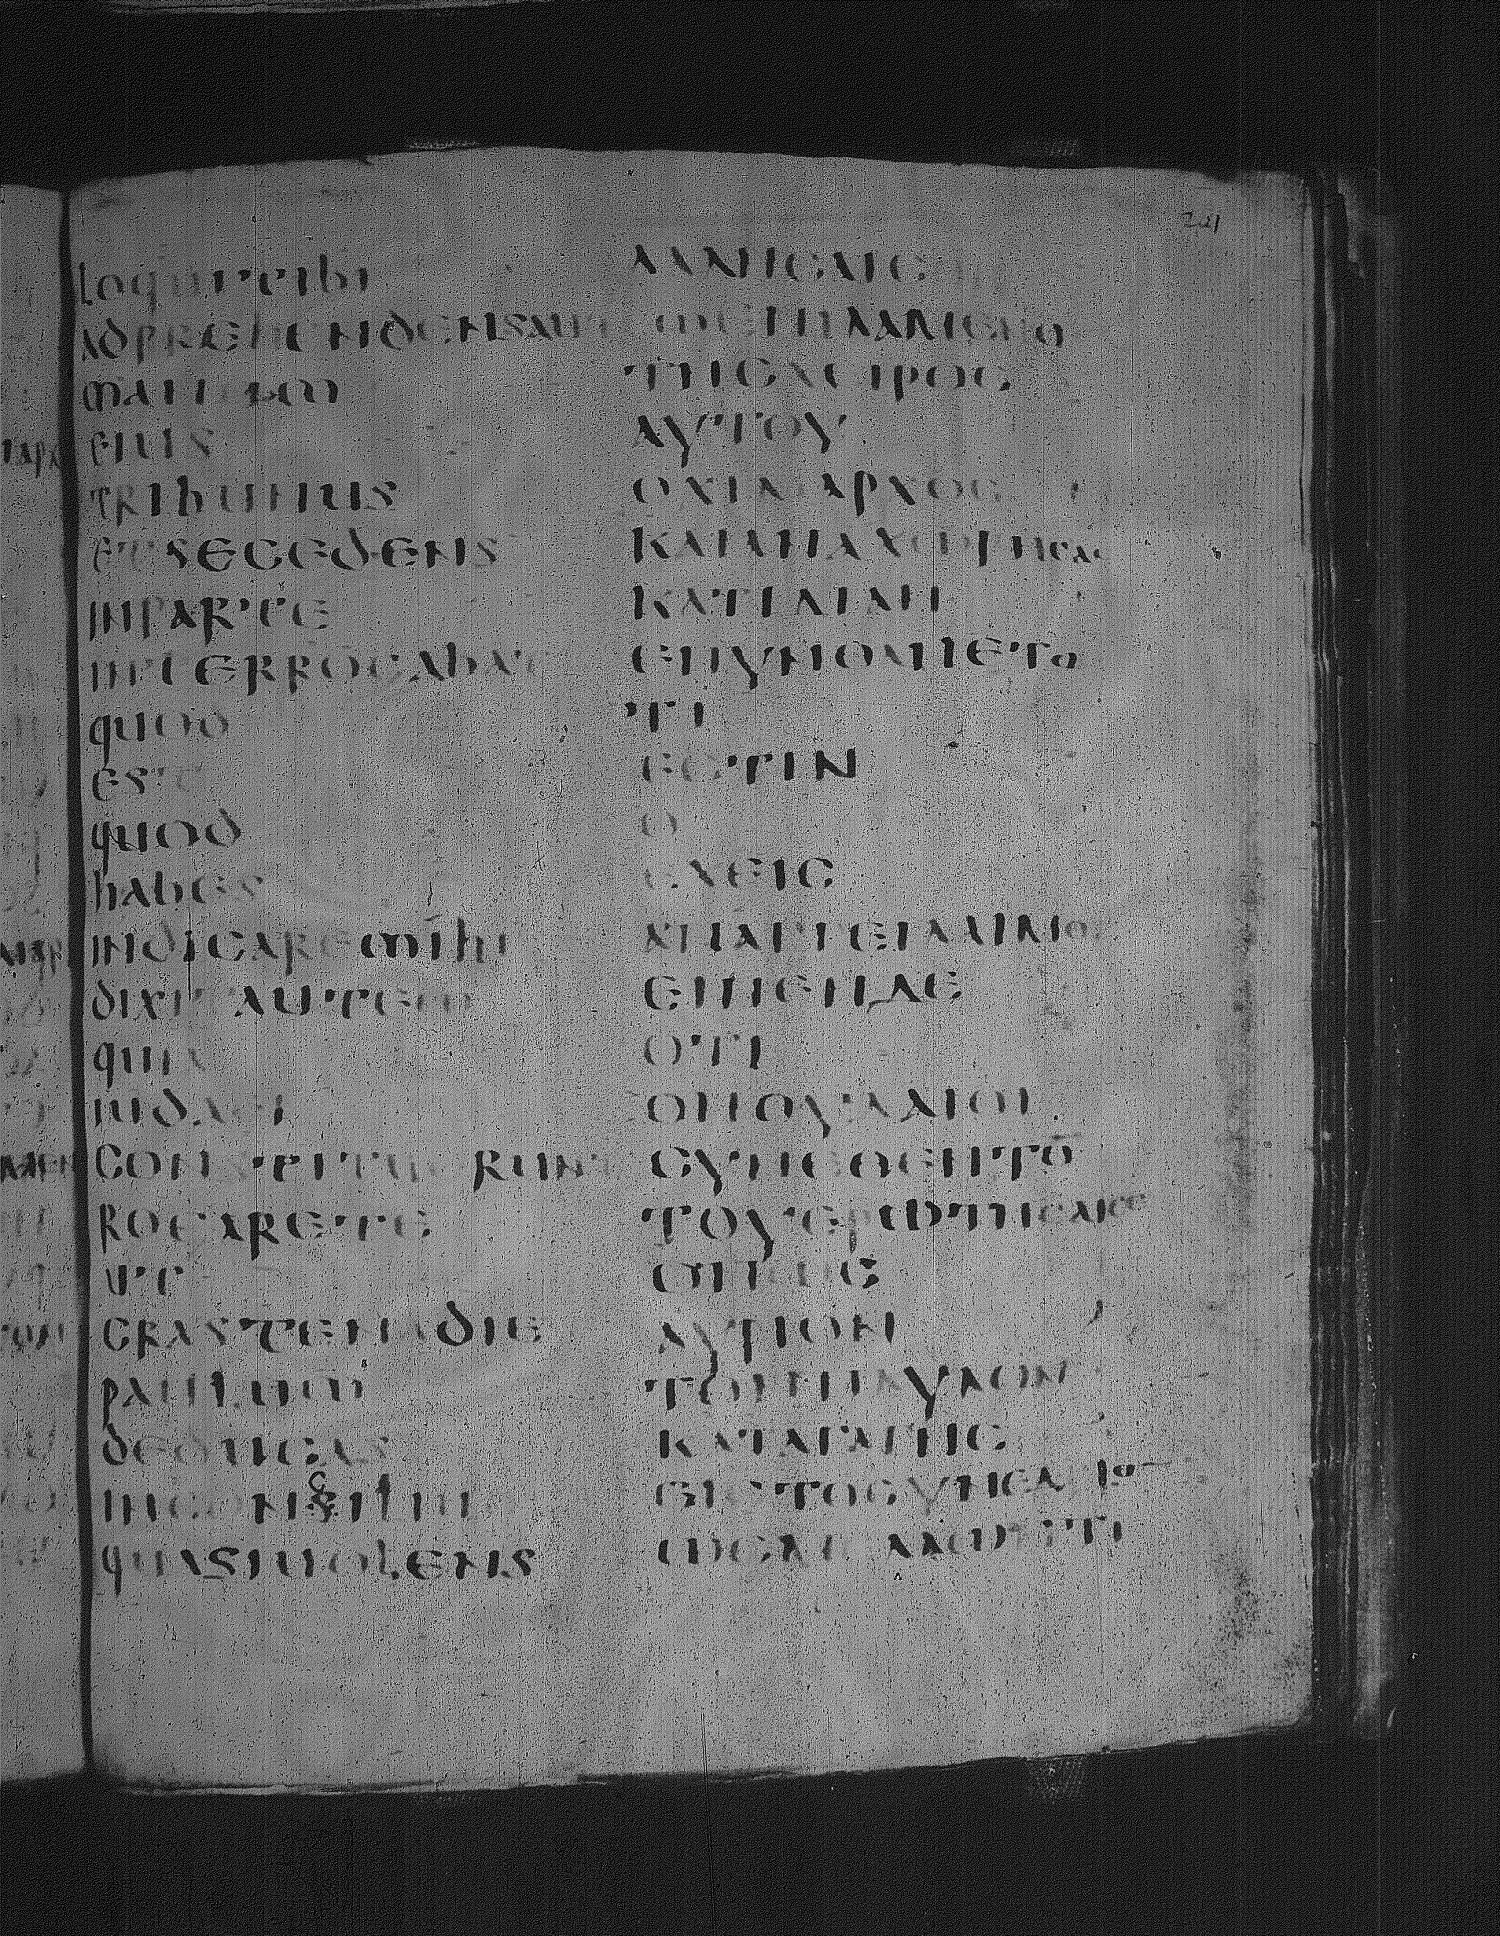 loquitibi
ADPREHENDENSAUT
manum
EIUS
TRIBUNUS
ETSECEDENS
INPARTE
INTERROGABAT
quod
EST
quod
habes
INDICARE mihi
dixit AUTEM
quia
iudaei
CONSTITUERUNT
ROGARETE
UT
CRASTENADIE
paulum
deducas
INCONCILIUM
quASIUOLENS
ΛΑΛΗϹΑΙϹ
ΤΗϹΧΕΙΡΟϹ
ΑΥΤΟΥ
ΟΧΙΛΙΑΡΧΟϹ
ΚΑΙΑΝΑΧΩΡΗϹΑϹ
ΚΑΤΙΔΙΑΝ
ΕΠΥΝΘΑΝΕΤΟ
ΤΙ
ΕϹΤΙΝ
Ο
ΕΧΕΙϹ
ΑΠΑΓΓΕΙΛΑΙΜΟΙ
ΕΙΠΕΝΔΕ
ΟΤΙ
ΟΙΙΟΥΔΑΙΟΙ
ϹΥΝΕΘΕΝΤΟ
ΤΟΥΕΡΩΤΗϹΑΙϹΕ
ΟΠΩϹ
ΑΥΡΙΟΝ
ΤΟΝΠΑΥΛΟΝ
ΚΑΤΑΓΑΓΗϹ
ΕΙϹΤΟϹΥΝΕΔΡΙΟ